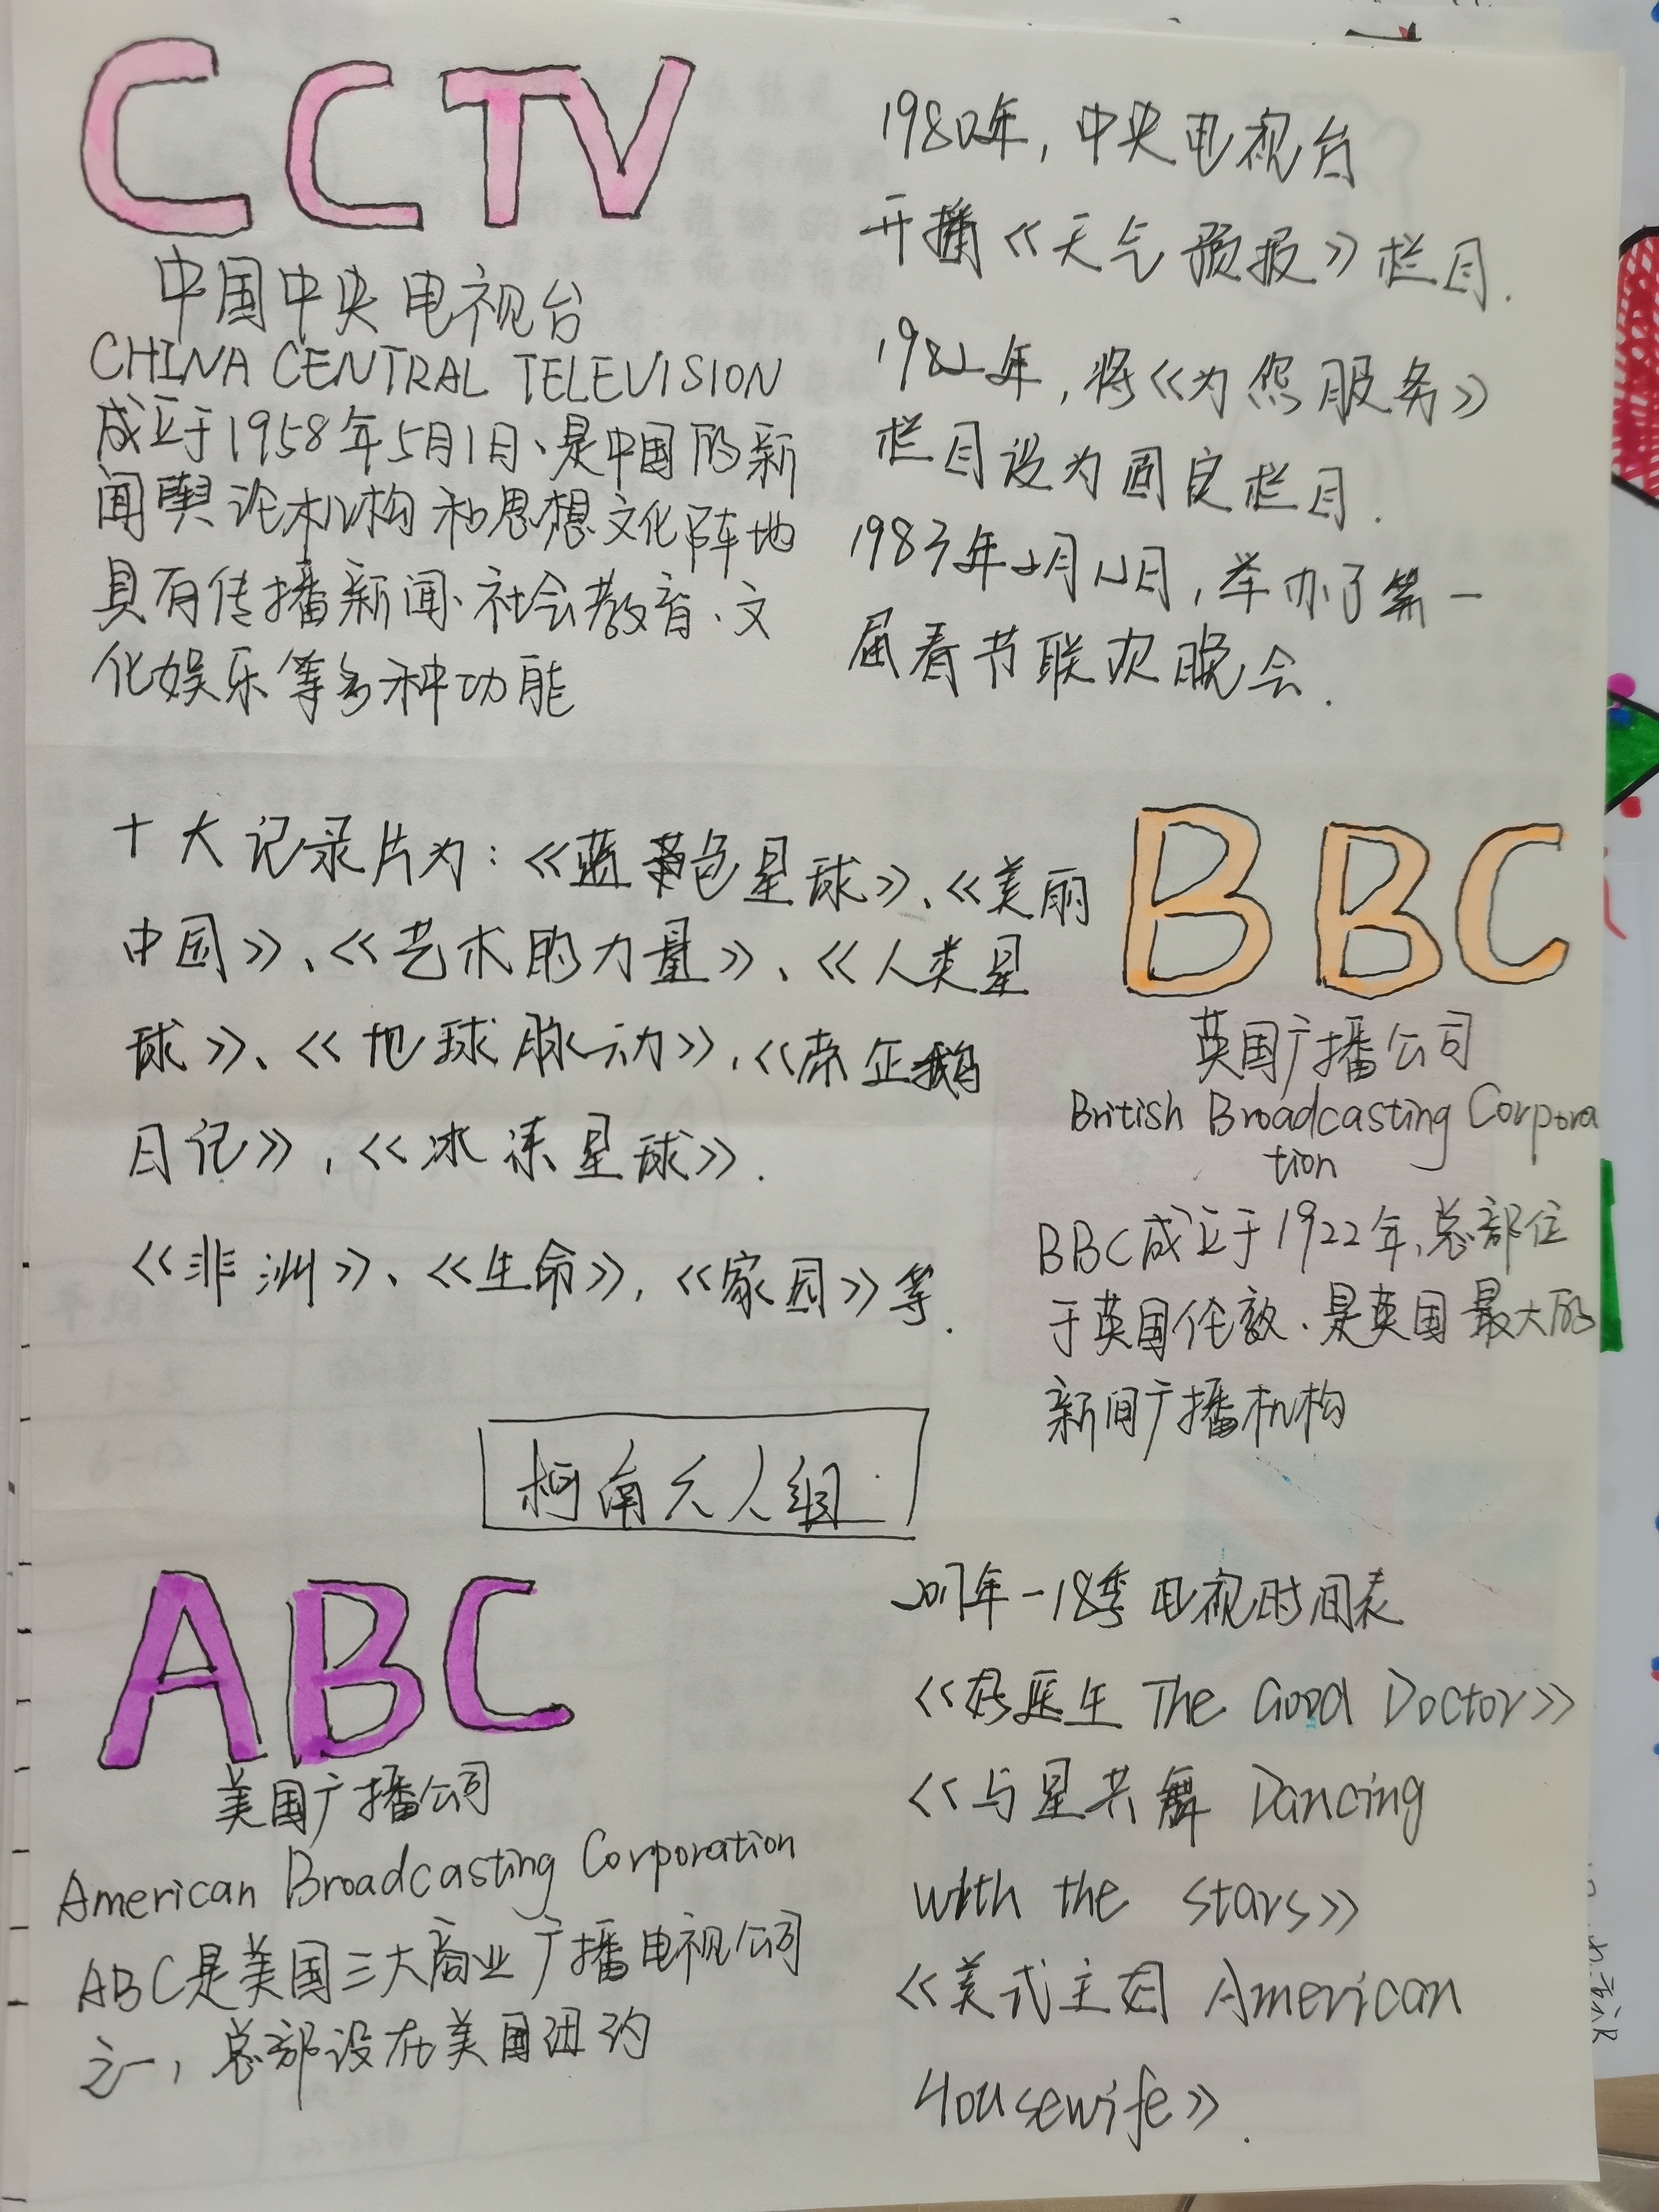 CCTV
中国中央电视台
CHINA CENTRAL TELEVISION
成立于1958年5月1日、是中国的新
闻舆论机构和思想文化阵地
具有传播新闻、社会教育、文
化娱乐等多种功能
1980年，中央电视台
开播《天气预报》栏目.
1982年，将《为您服务》
栏目设为固定栏目.
1983年2月12日，举办了第一
届春节联欢晚会.
十大记录片为：《蓝色星球》、《美丽
中国》、《艺术的力量》、《人类星
球》、《地球脉动》，《帝企鹅
日记》，《冰冻星球》.
《非洲》、《生命》，《家园》等.
BBC
英国广播公司
British Broadcasting Corpora
tion
BBC成立于1922年，总部位
于英国伦敦、是英国最大的
新闻广播机构
柯南 人组
ABC
美国广播公司
American Broadcasting Corporation
ABC是美国三大商业广播电视公司
之一，总部设在美国纽约
2017年-18季电视时间表
《好医生 The Good Doctor》
《与星共舞 Dancing
with the stars》
《美式主妇 American
Housewife》.